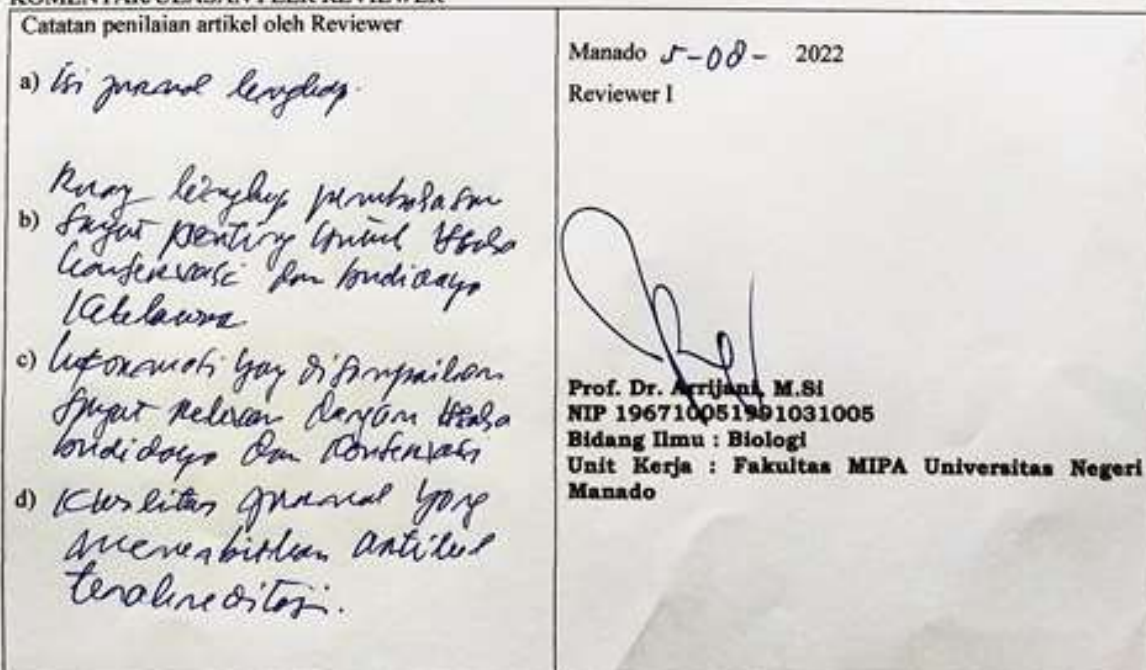 KOMENTAR/ULASAN PEER REVIEWER
Catatan penilaian artikel oleh Reviewer
a) Isi jurnal lengkap.
Ruang lingkup pembahasan
b) Sangat penting untuk usaha
konservasi dan budidaya
c) Informasi yang disampaikan
sangat relevan dengan usaha
budidaya dan konservasi
d) Kualitas jurnal yang
menerbitkan artikel
terakreditasi.
Manado 5-08- 2022
Reviewer I
Prof. Dr. Arrijani, M.Si
NIP 196710051991031005
Bidang Ilmu : Biologi
Unit Kerja : Fakultas MIPA Universitas Negeri
Manado